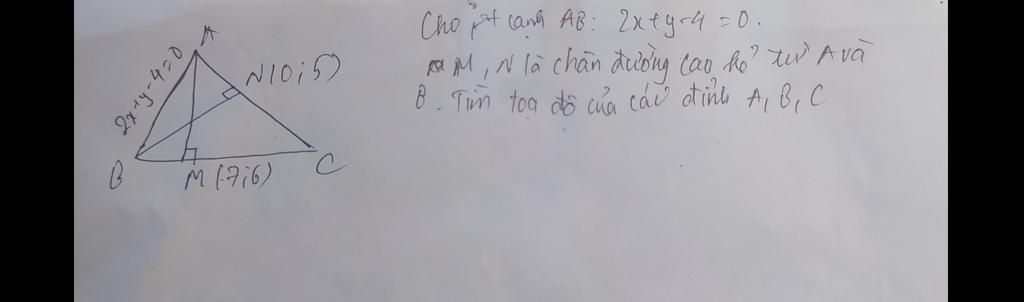 Cho pt cạnh AB: 2x+y-4=0.
M, N là chân đường cao kẻ từ A và
B. Tìm toạ độ của các đỉnh A, B, C
A
N(0;5)
2x+y-4=0
B
M(-7;6)
C